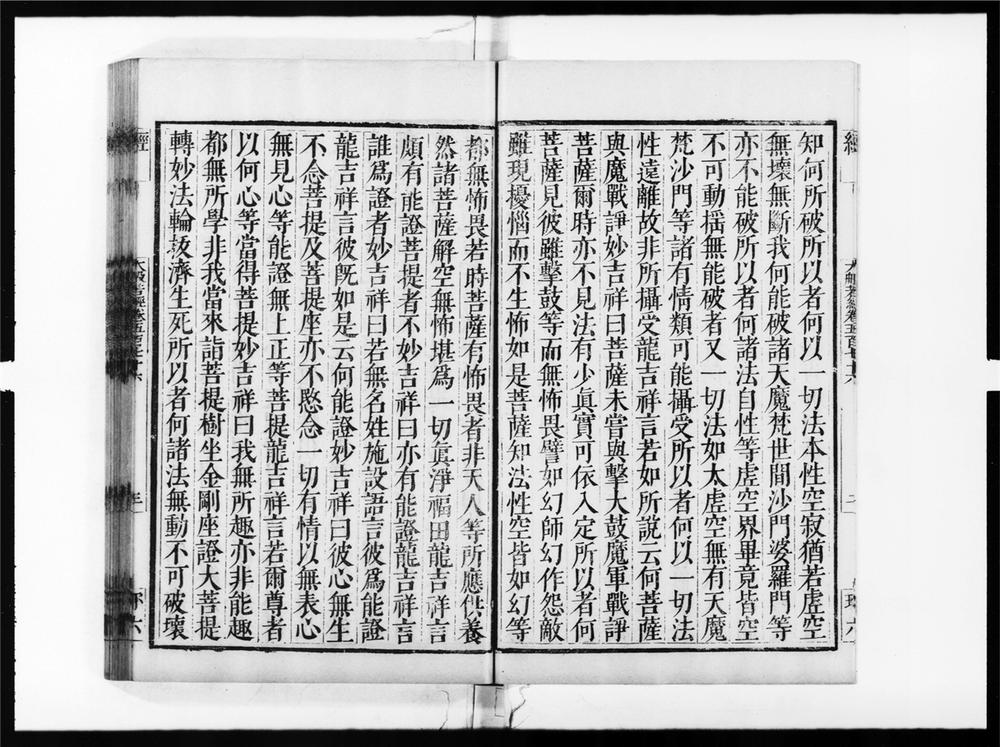 經
知何所破所以者何以一切法本性空寂猶若虛空
無壞無斷我何能破諸天魔梵世間沙門婆羅門等
亦不能破所以者何諸法自性等虛空界畢竟皆空
不可動搖無能破者又一切法如太虛空無有天魔
梵沙門等諸有情類可能攝受所以者何以一切法
性遠離故非所攝受龍吉祥言若如所說云何菩薩
與魔戰諍妙吉祥曰菩薩未嘗與擊大鼓魔軍戰諍
菩薩爾時亦不見法有少真實可依入定所以者何
菩薩見彼雖擊鼓等而無怖畏譬如幻師幻作怨敵
雖現擾惱而不生怖如是菩薩知法性空皆如幻等
都無怖畏若時菩薩有怖畏者非天人等所應供養
然諸菩薩解空無怖堪為一切真淨福田龍吉祥言
頗有能證菩提者不妙吉祥曰亦有能證龍吉祥言
誰為證者妙吉祥曰若無名姓施設語言彼為能證
龍吉祥言彼既如是云何能證妙吉祥曰彼心無生
不念菩提及菩提座亦不愍念一切有情以無表心
無見心等能證無上正等菩提龍吉祥言若爾尊者
以何心等當得菩提妙吉祥曰我無所趣亦非能趣
都無所學非我當來詣菩提樹坐金剛座證大菩提
轉妙法輪拔濟生死所以者何諸法無動不可破壞
經
大般若經卷五百七十六